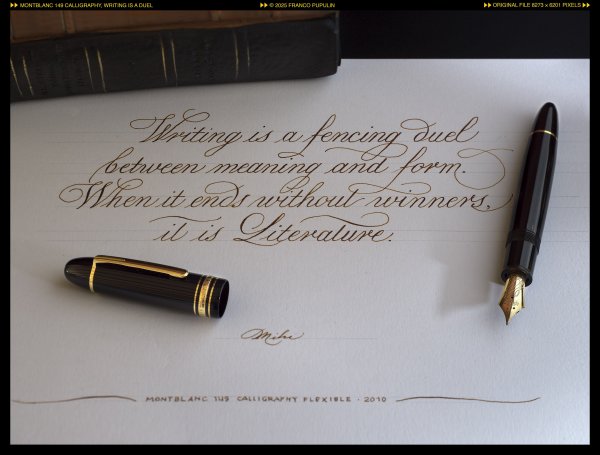 MONTBLANC 149 CALLIGRAPHY, WRITING IS A DUEL
© 2025 FRANCO PUPULIN
ORIGINAL FILE 8273 x 6201 PIXELS
Writing is a fencing duel
between meaning and form.
When it ends without winners,
it is Literature.
MONTBLANC 149 CALLIGRAPHY FLEXIBLE · 2010